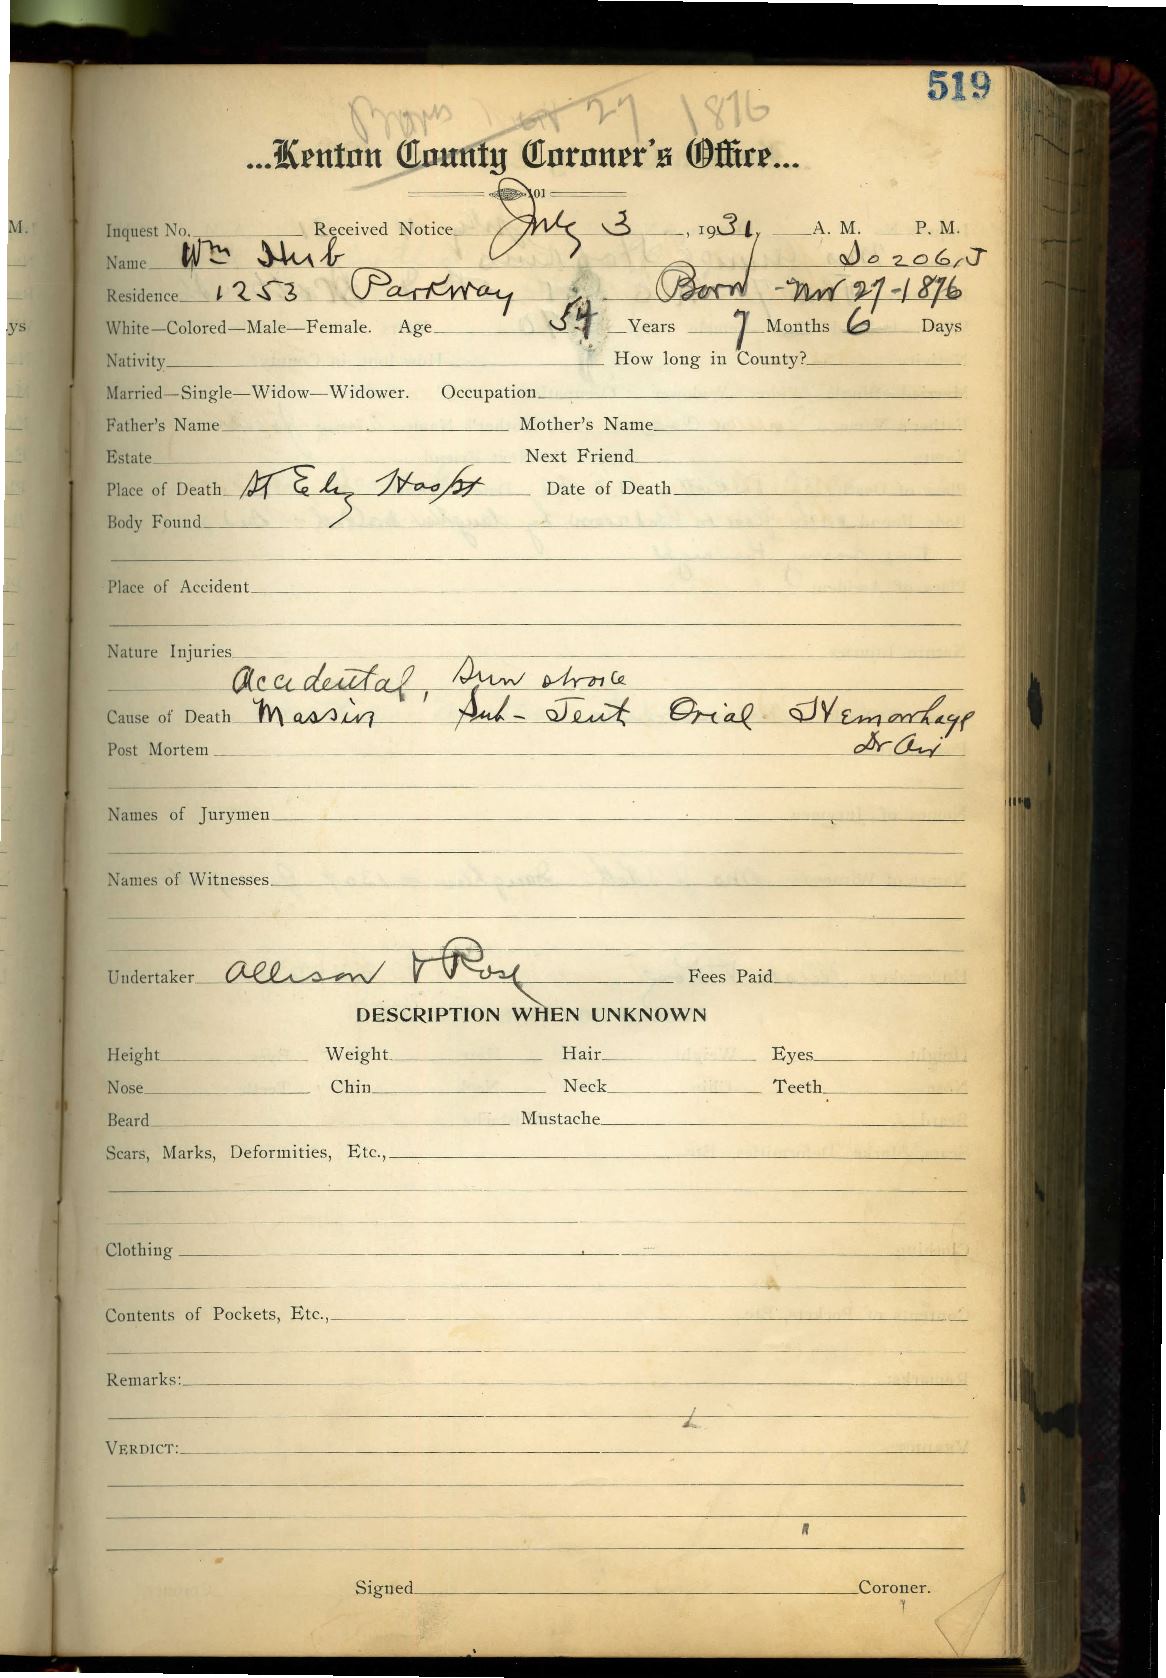 519
Born Nov 27 1876
...Kenton County Coroner's Office...
101
M.
Inquest No. Received Notice July 3, 1931, A. M. P. M.
Name Wm Hub So 206, J
Residence 1253 Parkway Born - Nov 27-1876
ys
White—Colored—Male—Female. Age 54 Years 7 Months 6 Days
Nativity How long in County?
Married—Single—Widow—Widower. Occupation
Father's Name Mother's Name
Estate Next Friend
Place of Death St Eliz Hospt Date of Death
Body Found
Place of Accident
Nature Injuries
Accidental, Sun stroke
Cause of Death Massiv Sub-Tent Orial Hemorrhage
Post Mortem Dr
Names of Jurymen
Names of Witnesses
Undertaker Allison & Rose Fees Paid
DESCRIPTION WHEN UNKNOWN
Height Weight Hair Eyes
Nose Chin Neck Teeth
Beard Mustache
Scars, Marks, Deformities, Etc.,
Clothing
Contents of Pockets, Etc.,
Remarks:
VERDICT:
Signed Coroner.